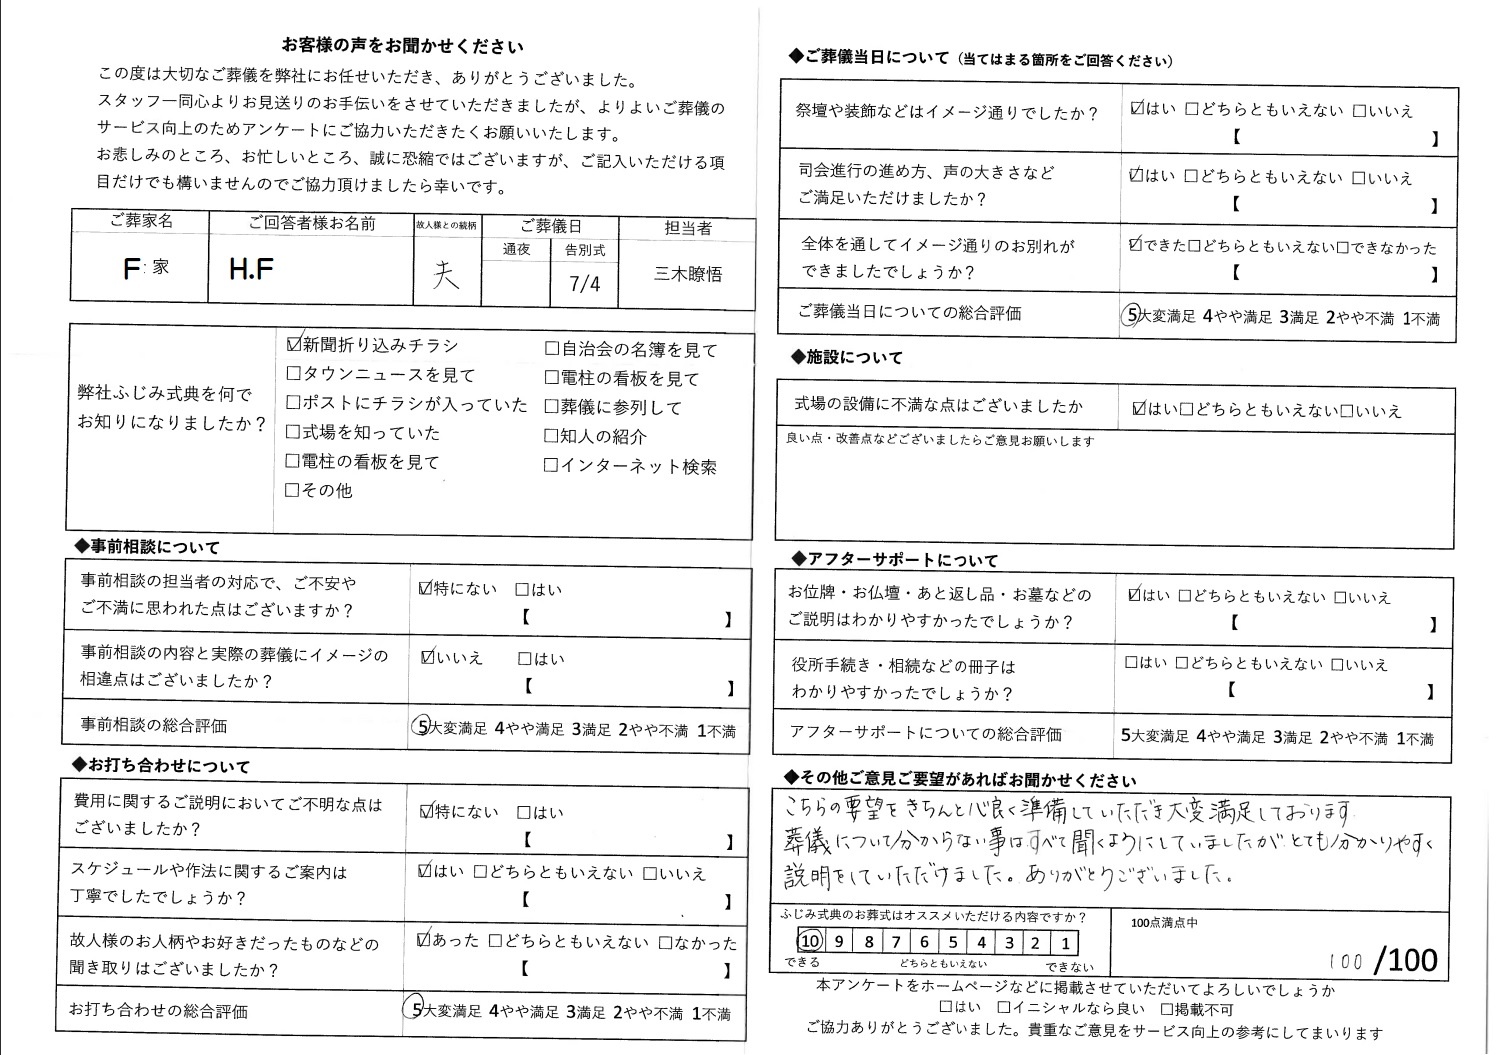 お客様の声をお聞かせください
この度は大切なご葬儀を弊社にお任せいただき、ありがとうございました。
スタッフ一同心よりお見送りのお手伝いをさせていただきましたが、よりよいご葬儀の
サービス向上のためアンケートにご協力いただきたくお願いいたします。
お悲しみのところ、お忙しいところ、誠に恐縮ではございますが、ご記入いただける項
目だけでも構いませんのでご協力頂けましたら幸いです。
ご葬家名 ご回答者様お名前 故人様との続柄 ご葬儀日 担当者
通夜 告別式
F 家 H.F 夫 7/4 三木瞭悟
弊社ふじみ式典を何で
お知りになりましたか？
☑新聞折り込みチラシ □自治会の名簿を見て
□タウンニュースを見て □電柱の看板を見て
□ポストにチラシが入っていた □葬儀に参列して
□式場を知っていた □知人の紹介
□電柱の看板を見て □インターネット検索
□その他
◆事前相談について
事前相談の担当者の対応で、ご不安や
ご不満に思われた点はございますか？
☑特にない □はい
【 】
事前相談の内容と実際の葬儀にイメージの
相違点はございましたか？
☑いいえ □はい
【 】
事前相談の総合評価 5大変満足 4やや満足 3満足 2やや不満 1不満
◆お打ち合わせについて
費用に関するご説明においてご不明な点は
ございましたか？
☑特にない □はい
【 】
スケジュールや作法に関するご案内は
丁寧でしたでしょうか？
☑はい □どちらともいえない □いいえ
【 】
故人様のお人柄やお好きだったものなどの
聞き取りはございましたか？
☑あった □どちらともいえない □なかった
【 】
お打ち合わせの総合評価 5大変満足 4やや満足 3満足 2やや不満 1不満
◆ご葬儀当日について（当てはまる箇所をご回答ください）
祭壇や装飾などはイメージ通りでしたか？ ☑はい □どちらともいえない □いいえ
【 】
司会進行の進め方、声の大きさなど
ご満足いただけましたか？
☑はい □どちらともいえない □いいえ
【 】
全体を通してイメージ通りのお別れが
できましたでしょうか？
☑できた□どちらともいえない□できなかった
【 】
ご葬儀当日についての総合評価 5大変満足 4やや満足 3満足 2やや不満 1不満
◆施設について
式場の設備に不満な点はございましたか ☑はい□どちらともいえない□いいえ
良い点・改善点などございましたらご意見お願いします
◆アフターサポートについて
お位牌・お仏壇・あと返し品・お墓などの
ご説明はわかりやすかったでしょうか？
☑はい □どちらともいえない □いいえ
【 】
役所手続き・相続などの冊子は
わかりやすかったでしょうか？
□はい □どちらともいえない □いいえ
【 】
アフターサポートについての総合評価 5大変満足 4やや満足 3満足 2やや不満 1不満
◆その他ご意見ご要望があればお聞かせください
こちらの要望をきちんと心良く準備していただき大変満足しております
葬儀について分からない事はすべて聞くようにしていましたがとても分かりやすく
説明をしていただけました。ありがとうございました。
ふじみ式典のお葬式はオススメいただける内容ですか？
10 9 8 7 6 5 4 3 2 1
できる どちらともいえない できない
100点満点中
100 /100
本アンケートをホームページなどに掲載させていただいてよろしいでしょうか
□はい □イニシャルなら良い □掲載不可
ご協力ありがとうございました。貴重なご意見をサービス向上の参考にしてまいります